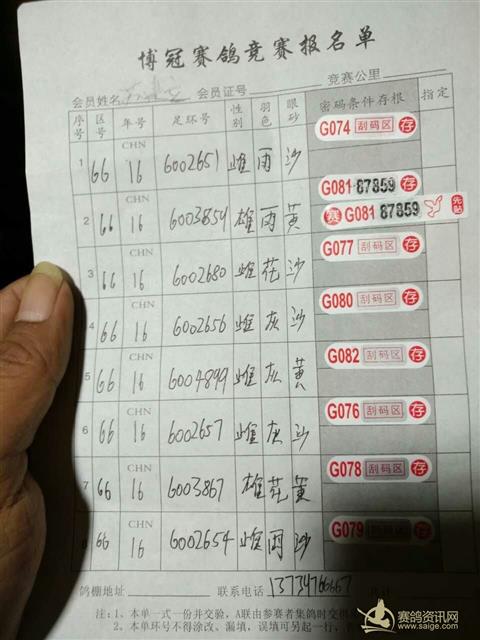 博冠赛鸽竞赛报名单
会员姓名 会员证号 竞赛公里
序号 区号 年号 足环号 性别 羽色 眼砂 密码条件存根 指定
G074 刮码区 存
1 66 CHN 16 6002651 雌 雨 沙
G081 87859 存
2 66 CHN 16 6003854 雄 雨 黄 赛 G081 87859 先贴
G077 刮码区 存
3 66 CHN 16 6002680 雌 花 沙
G080 刮码区 存
4 66 CHN 16 6002656 雌 灰 沙
G082 刮码区 存
5 66 CHN 16 6004899 雌 灰 黄
G076 刮码区 存
6 66 CHN 16 6002657 雌 灰 沙
G078 刮码区 存
7 66 CHN 16 6003867 雄 花 黄
G079 刮码区 存
8 66 CHN 16 6002654 雌 雨 沙
鸽棚地址 联系电话 13734766667
注:1、本单一式一份并交验，A联由参赛者集鸽时交
2、本单环号不得涂改、漏填，误填可另起一行，
赛鸽资讯网
www.saige.com